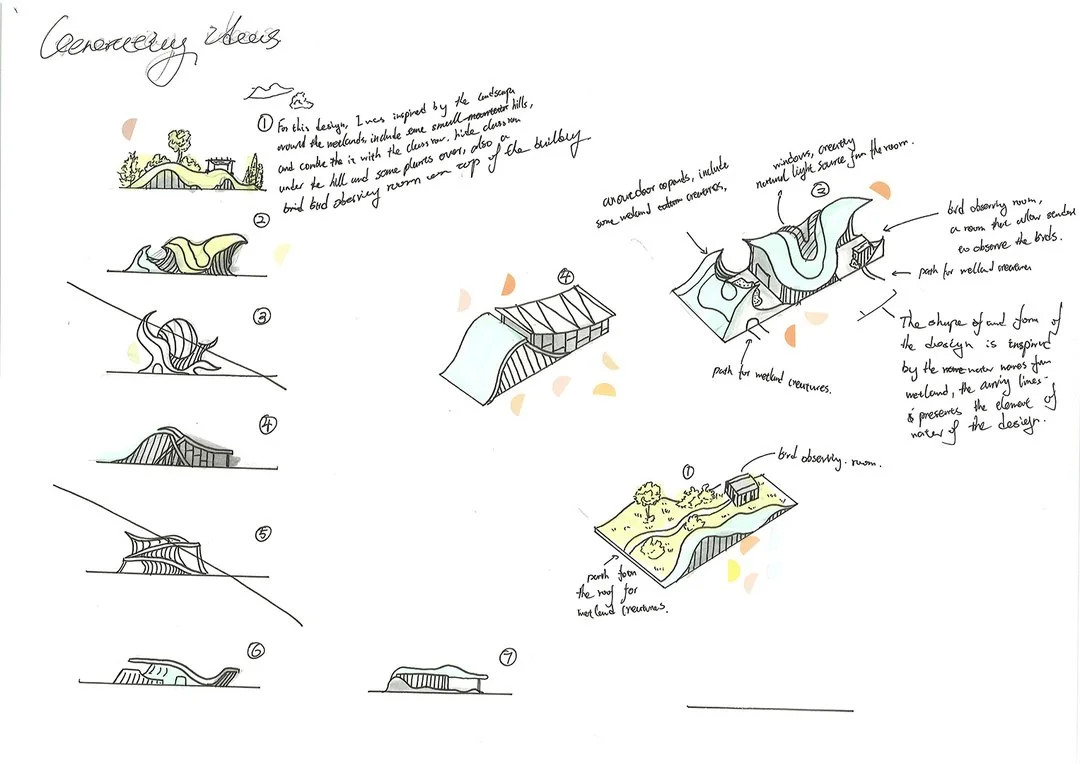 Generating Ideas
① For this design, I was inspired by the landscape
around the wetlands, include some small mountain hills,
and combe the it with the class row. hide class row
under the hill and some plants over, also a
brid bird observing room on top of the building
②
③
④
⑤
⑥
⑦
④
an outdoor expends, include
some wetland creatures,
windows, creating
natural light source from the room.
②
bird observing room,
a room that allow student
to observe the birds.
path for wetland creatures
path for wetland creatures.
The shape of and form of
the design is inspired
by the water waves from
wetland, the curving lines
presents the element of
water of the design.
①
bird observing room.
parth from
the roof for
wetland creatures.